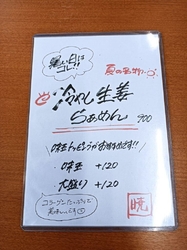 暑い日は
コレ!!
夏の風物詩
冷やし生姜
らぁめん 900
味玉トッピングがおすすめです!!
・味玉 +120
・大盛り +120
コラーゲンたっぷりで
美味しいです
暁